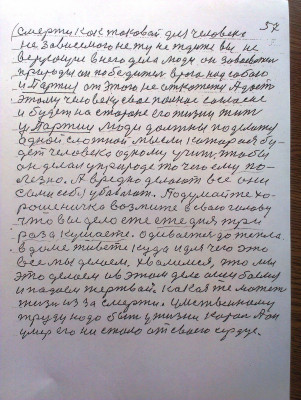 57
смерти как таковой для человека
не зависимого нету не ждите вы не
верующие в него дела люди он завоевал
природу он победитель врага над собою
и Партия от этого не откажется А даст
этому человеку свое полное согласие
и будет на стороне его жизни жить
у Партии люди должны подойти
одной сложной мыслью которая бу-
дет человека одному учить чтобы
он делал в природе то чего ему по-
лезно. А вредно делают все они
сами себя убивают. Подумайте хо-
рошенечко возьмите в свою голову
что вы едите еще дня три
раза кушаете. Одеваетесь до тепла
в доме живете куда и для чего это
все мы делаем, хвалимся, что мы
это делаем и в этом деле мы болеем
и падаем жертвой. Какая же может
жизнь из за смерти. Умственному
труду надо быть у жизни
умер его не стало от своего сердца.